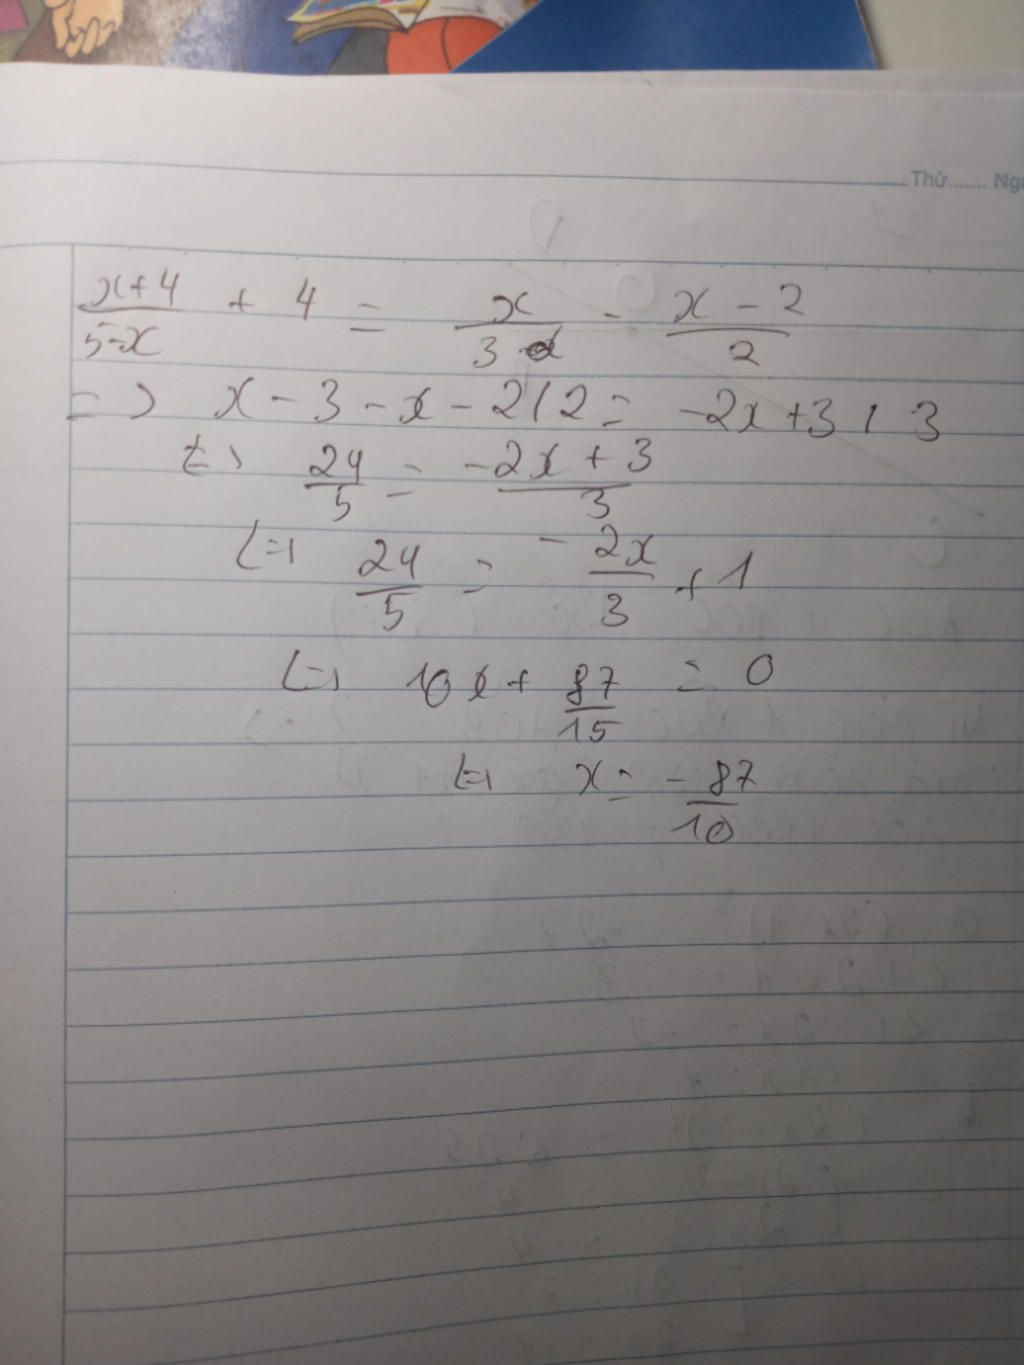 Thứ....... Ngà
x+4/5-x + 4 = x/3 - x-2/2
=> x - 3 - x - 2/2 = -2x+3/3
<=> 24/5 = -2x+3/3
<=> 24/5 = -2x/3 + 1
<=> 10x + 87/15 = 0
<=> x = -87/10